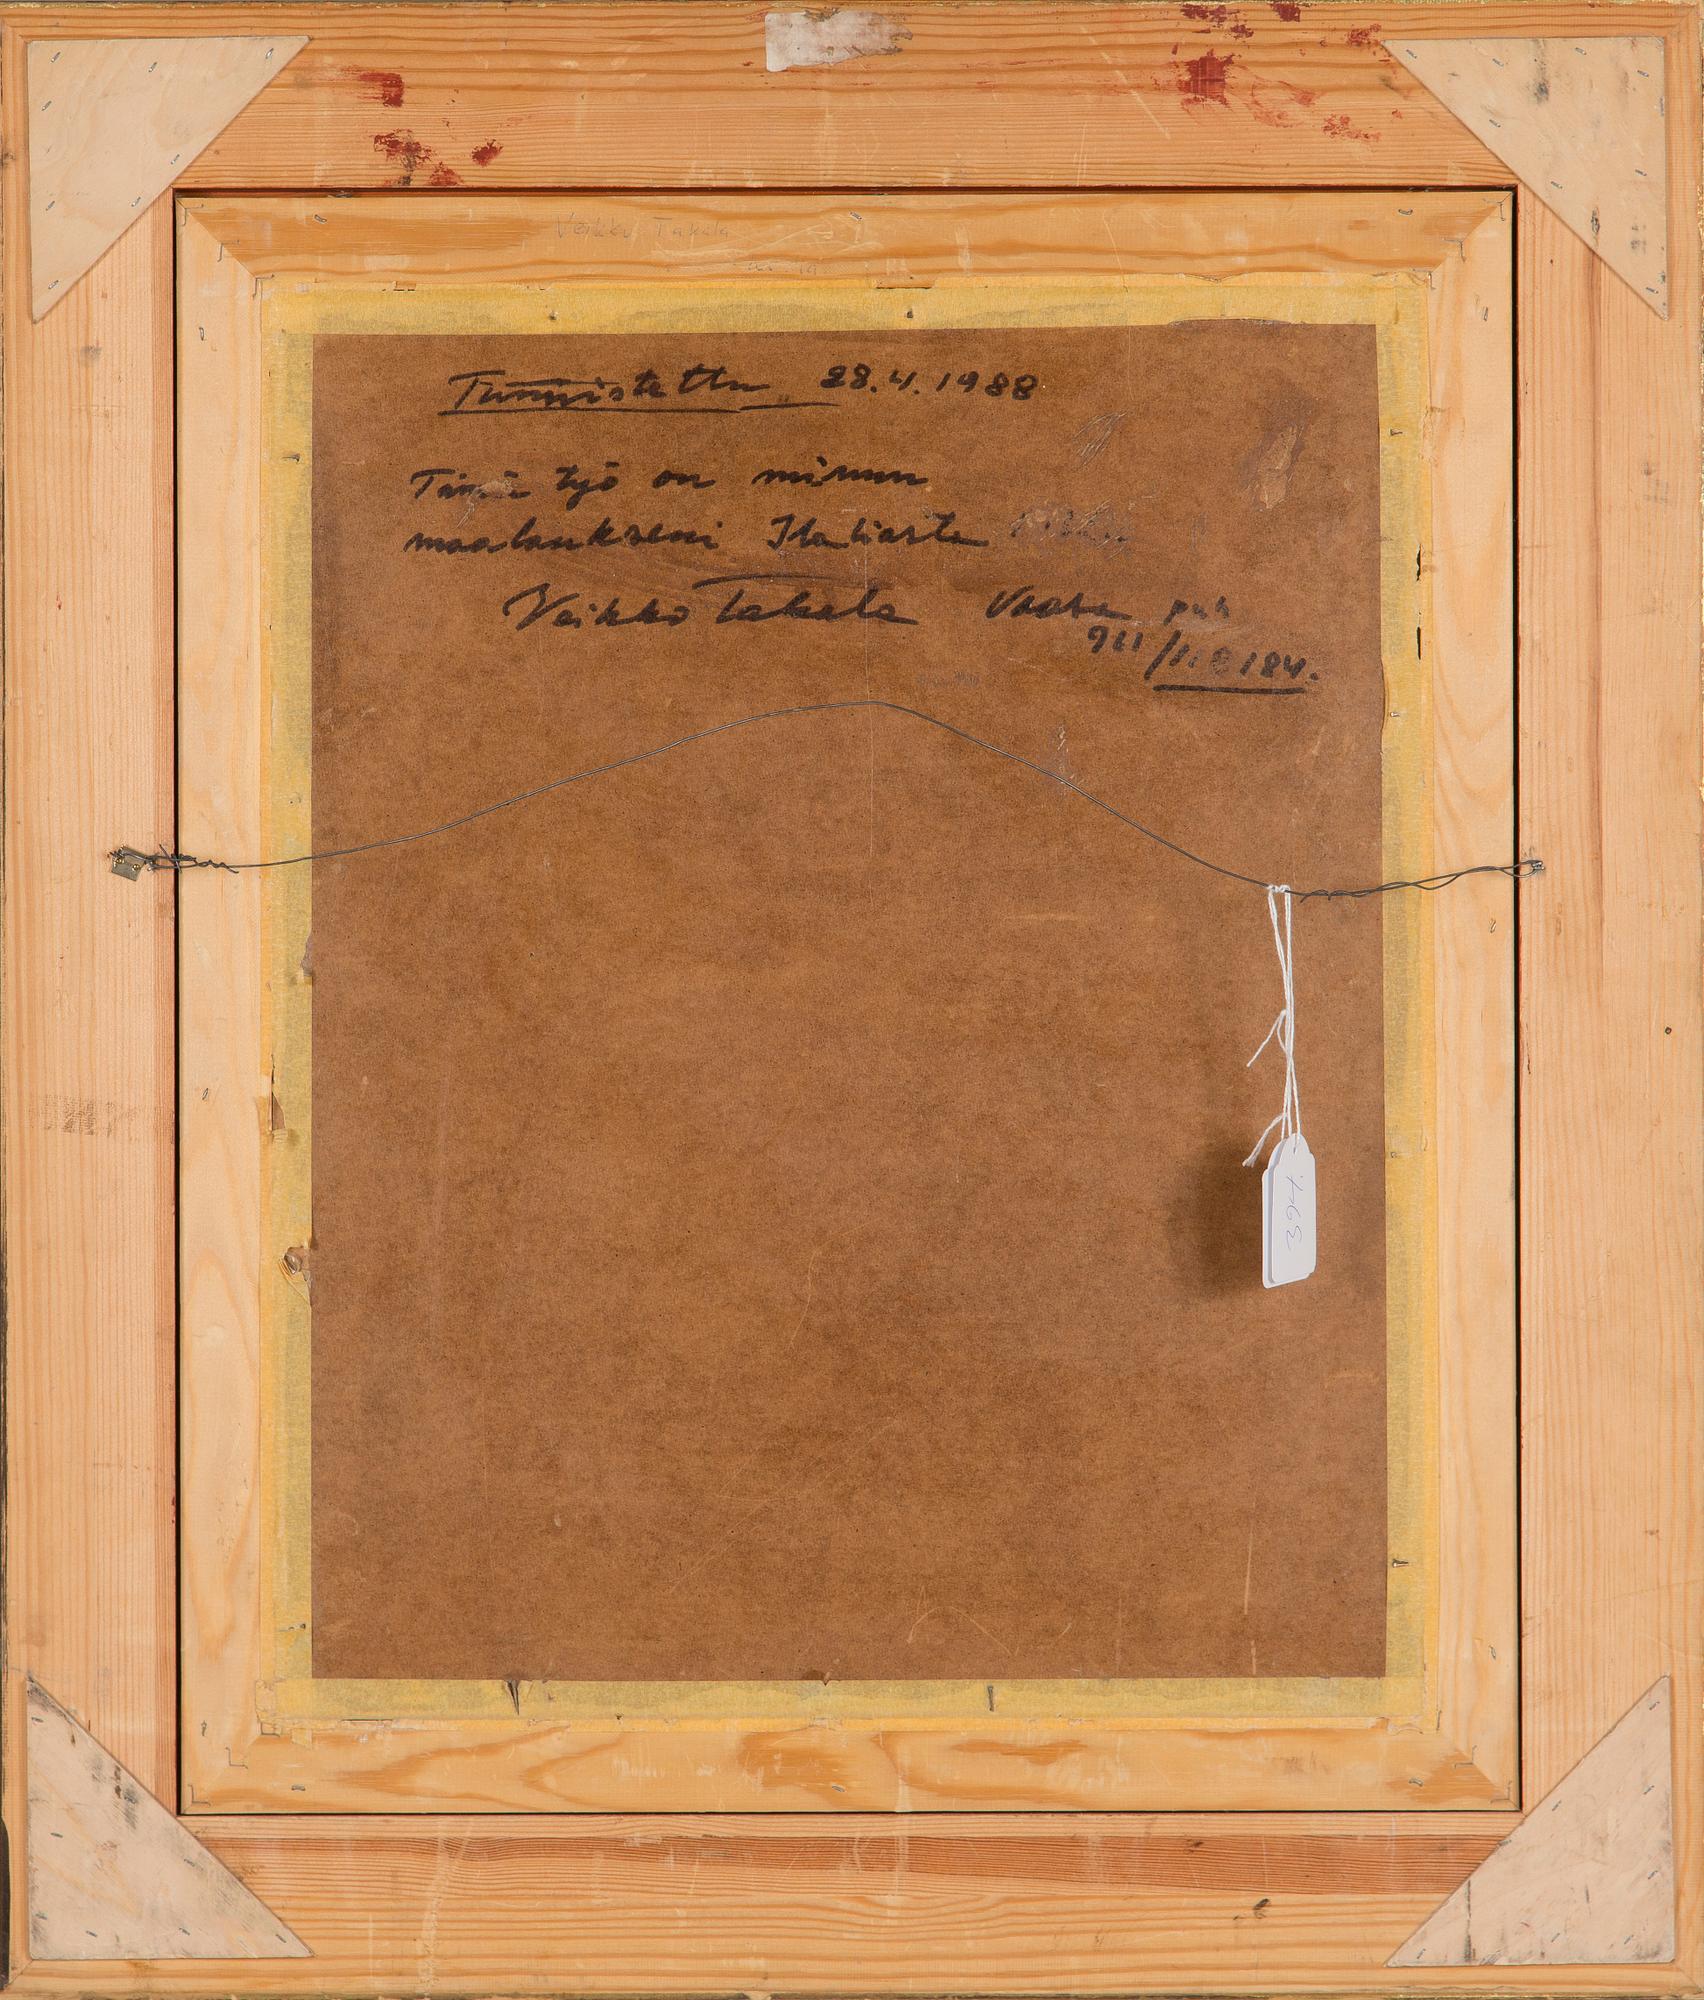 Veikko Takala
Tunnistettu 28.4.1988
Tämä työ on minun
maalaukseni Italiasta
Veikko Takala Vaasa puh
961/118184.
394.